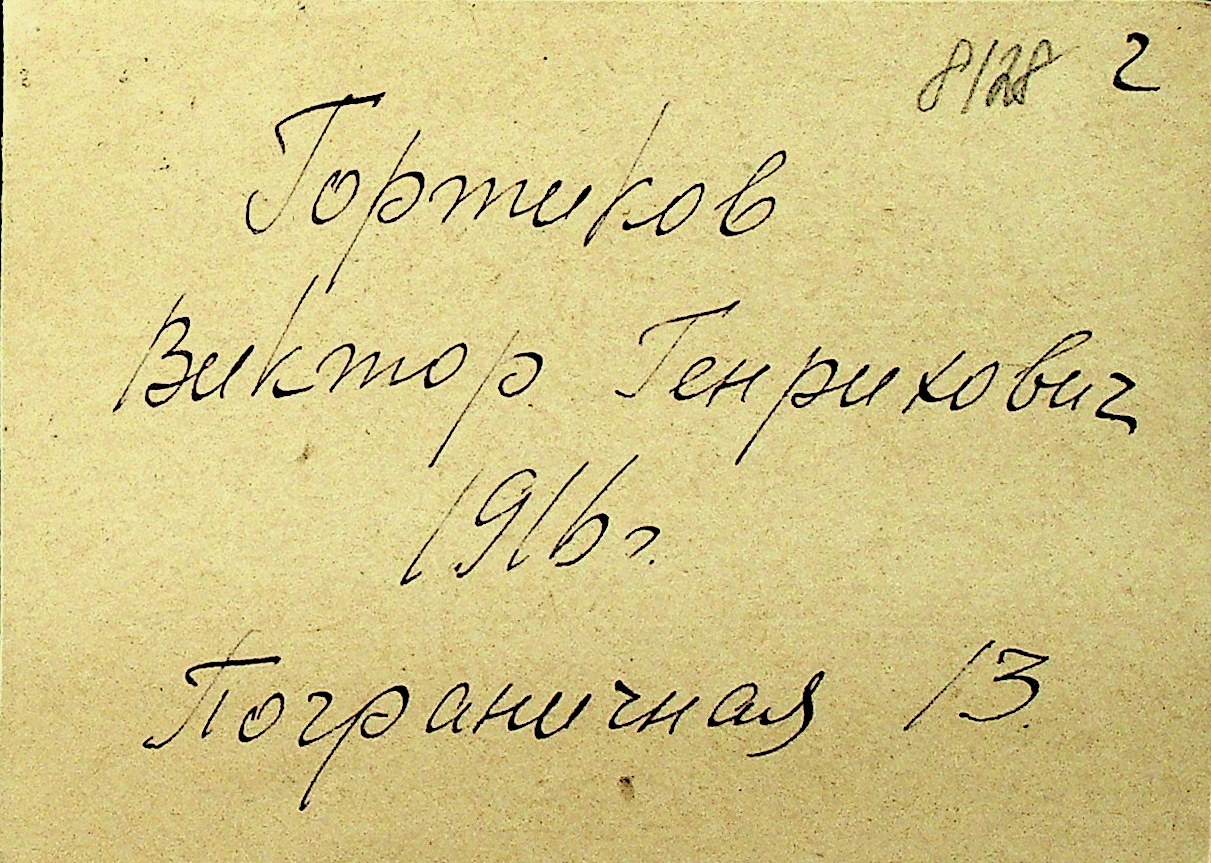 8128 2
Гортиков
Виктор Генрихович
1916 г.
Пограничная 13.